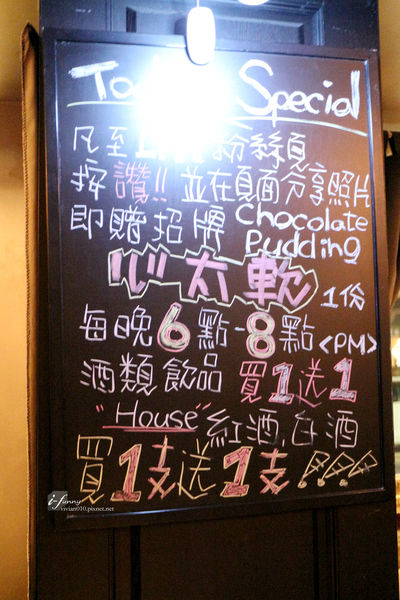 To Special
凡至 粉絲頁
按讚!! 並在頁面分享照片
即贈招牌 Chocolate Pudding
心太軟 1份
每晚6點-8點<PM>
酒類飲品 買1送1
"House" 紅酒,白酒
買1支送1支
i-funny
vivian010.pixnet.net